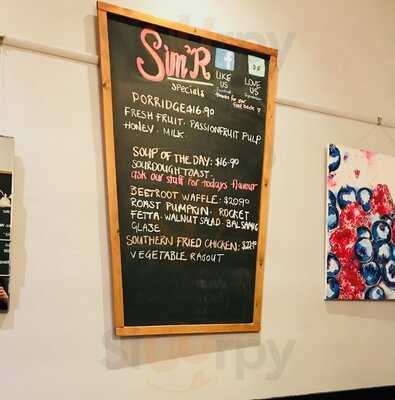 Sim'R
specials
LIKE
US
LOVE
US
PORRIDGE $16.90
FRESH FRUIT. PASSIONFRUIT PULP
HONEY. MILK.
SOUP OF THE DAY: $16.90
SOURDOUGH TOAST.
ask our staff for todays flavour
BEETROOT WAFFLE: $20.90
ROAST PUMPKIN. ROCKET
FETTA. WALNUT SALAD. BALSAMIC
GLAZE
SOUTHERN FRIED CHICKEN:
VEGETABLE RAGOUT